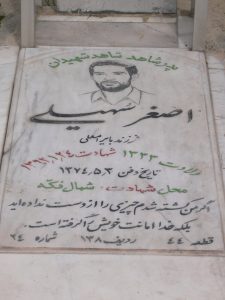 پیر شاهد شاهد شهیدان
اصغر سهیلی
فرزند بابر
ولادت ۱۳۳۳ شهادت ۱۳۶۲٫۱٫۲۴
تاریخ دفن ۱۳۷۴٫۵٫۳
محل شهادت: شمال فکه
اگر من کشته شدم چیزی را از دست نداده اید
بلکه خدا امانت خویش را گرفته است.
قطعه ۴۴ ردیف ۱۳۸ شماره ۲۴